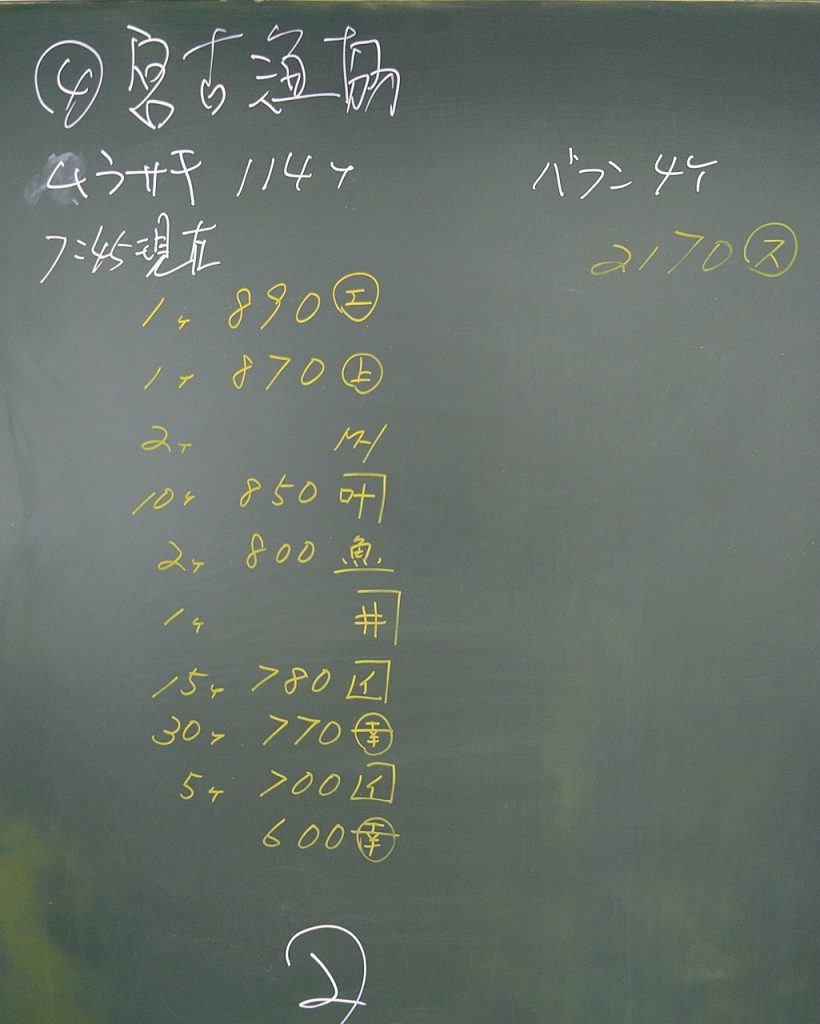 ④宮古漁協
ムラサキ 114ケ
7:45現在
1ケ 890 エ
1ケ 870 上
2ケ
10ケ 850 叶
2ケ 800 魚
1ケ 井
15ケ 780 イ
30ケ 770 幸
5ケ 700 イ
600 幸
バフン 4ケ
2170 ス